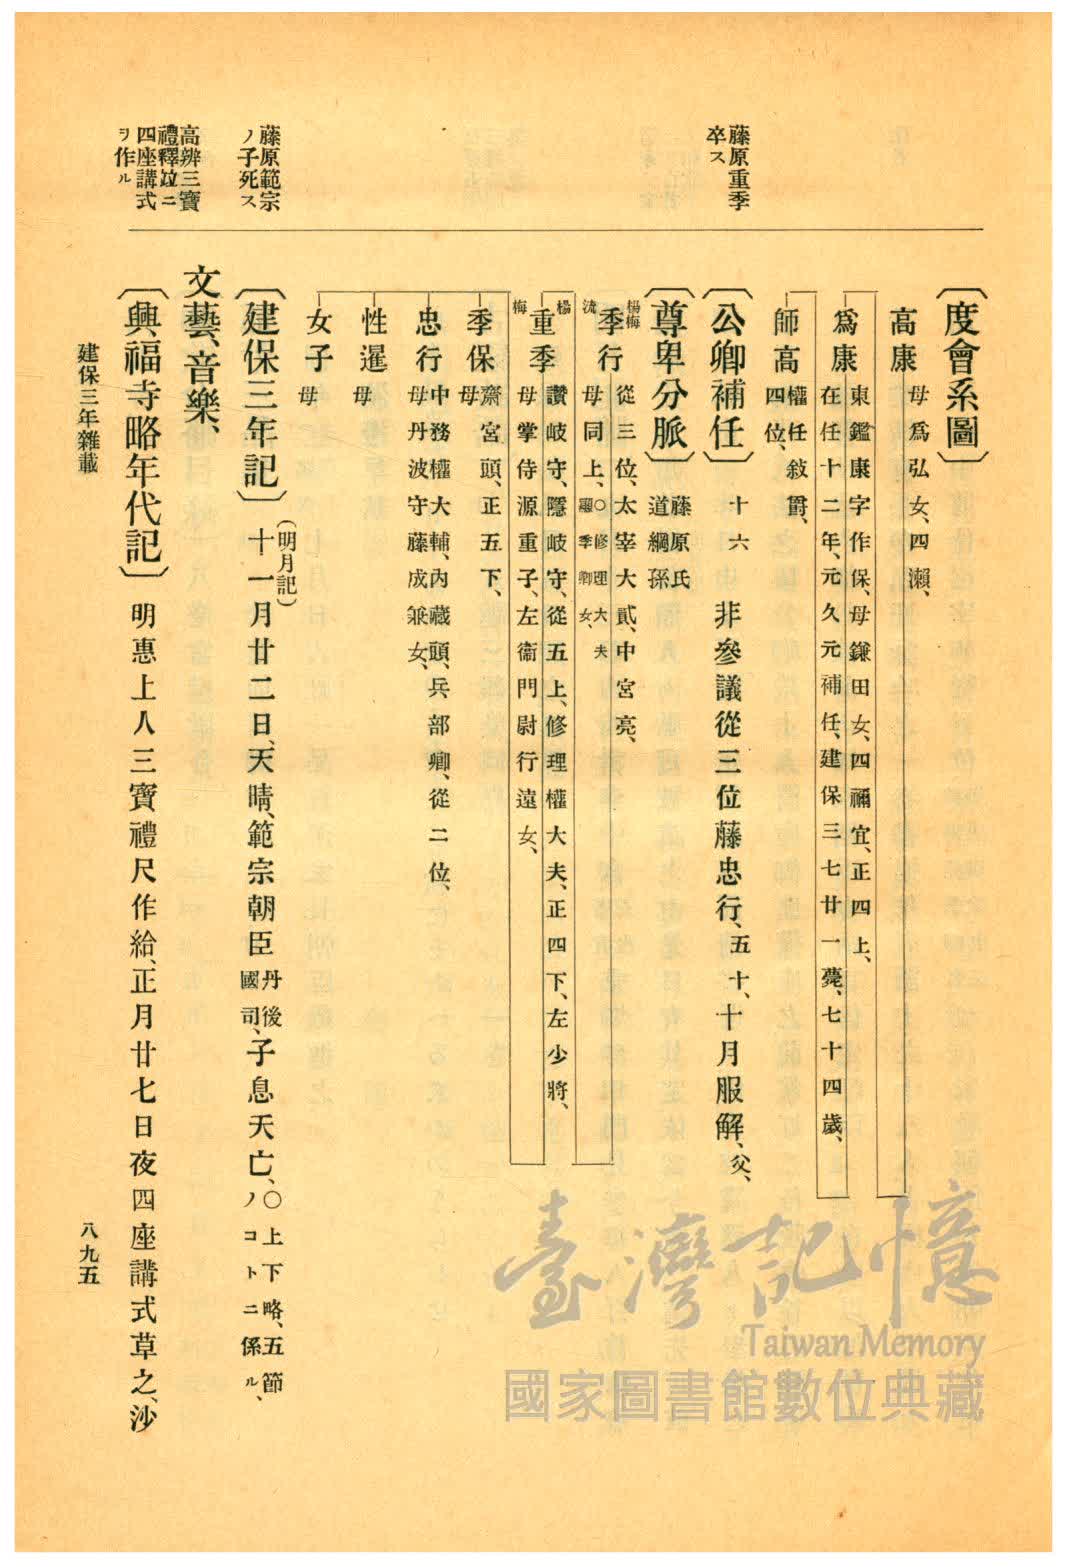 藤原重季
卒ス
藤原範宗
ノ子死ス
高辨三寶
禮釋竝ニ
四座講式
ヲ作ル
〔度會系圖〕
高康
母爲弘女、四瀬、
爲康
東鑑康字作保、母鎌田女、四禰宜、正四上、
在任十二年、元久元補任、建保三七廿一薨、七十四歲、
師高
權任敍爵、
四位、
〔公卿補任〕十六 非參議從三位藤忠行、五十、十月服解、父、
〔尊卑分脈〕
藤原氏
道綱孫
楊梅
季行
從三位、太宰大貳、中宮亮、
流
母同上、○修理大夫
季卿女、
楊
梅
重季
讚岐守、隱岐守、從五上、修理權大夫、正四下、左少將、
母掌侍源重子、左衞門尉行遠女、
季保
齋宮頭、正五下、
母
忠行
中務權大輔、內藏頭、兵部卿、從二位、
母丹波守藤成兼女、
性暹
母
女子
母
〔建保三年記〕
(明月記)
十一月廿二日、天晴、範宗朝臣
丹後
國司、
子息夭亡、
○上下略、五節
ノコトニ係ル、
文藝、音樂、
〔興福寺略年代記〕 明惠上人三寶禮尺作給、正月廿七日夜四座講式草之、沙
建保三年雜載
八九五
臺灣記憶
Taiwan Memory
國家圖書館數位典藏